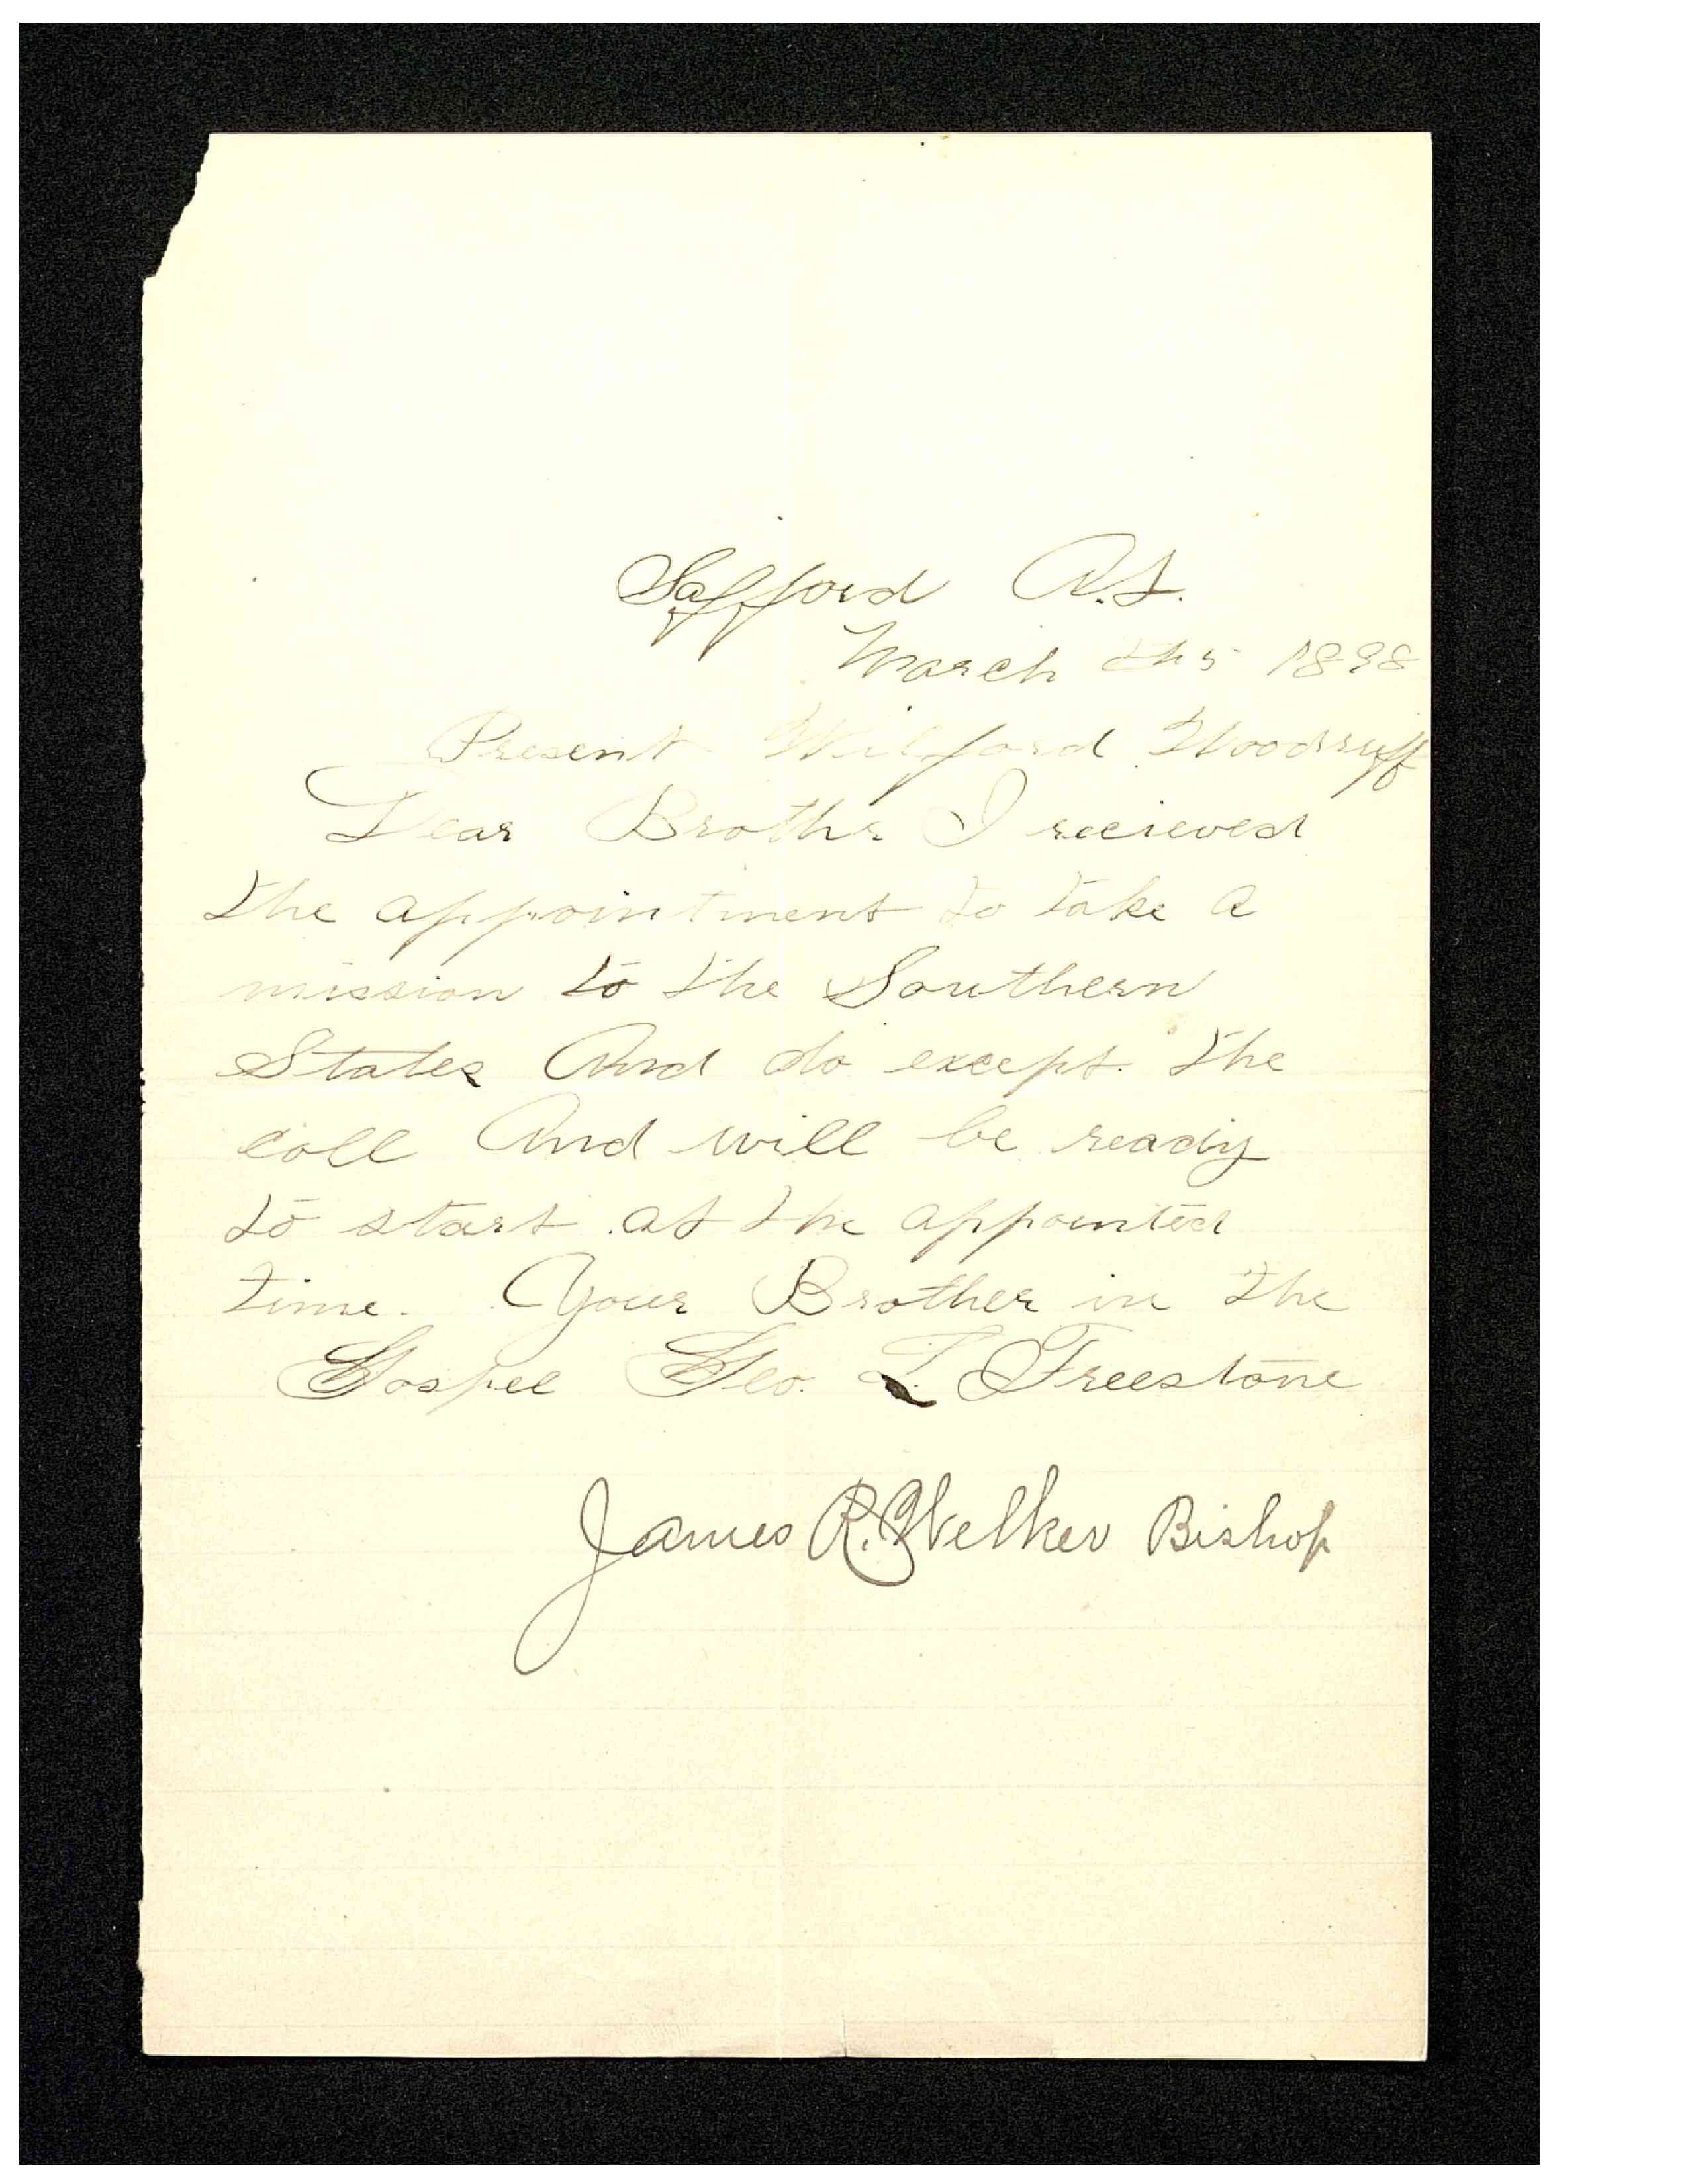 Safford A.T.
March th 5 1898
Present Wilford Woodruff
Dear Brothr I recieved
the appointment to take a
mission to the Southern
States And do except the
coll And will be ready
to start at the appointed
time. Your Brother in the
Gospel Geo. L. Freestone
James R. Welker Bishop